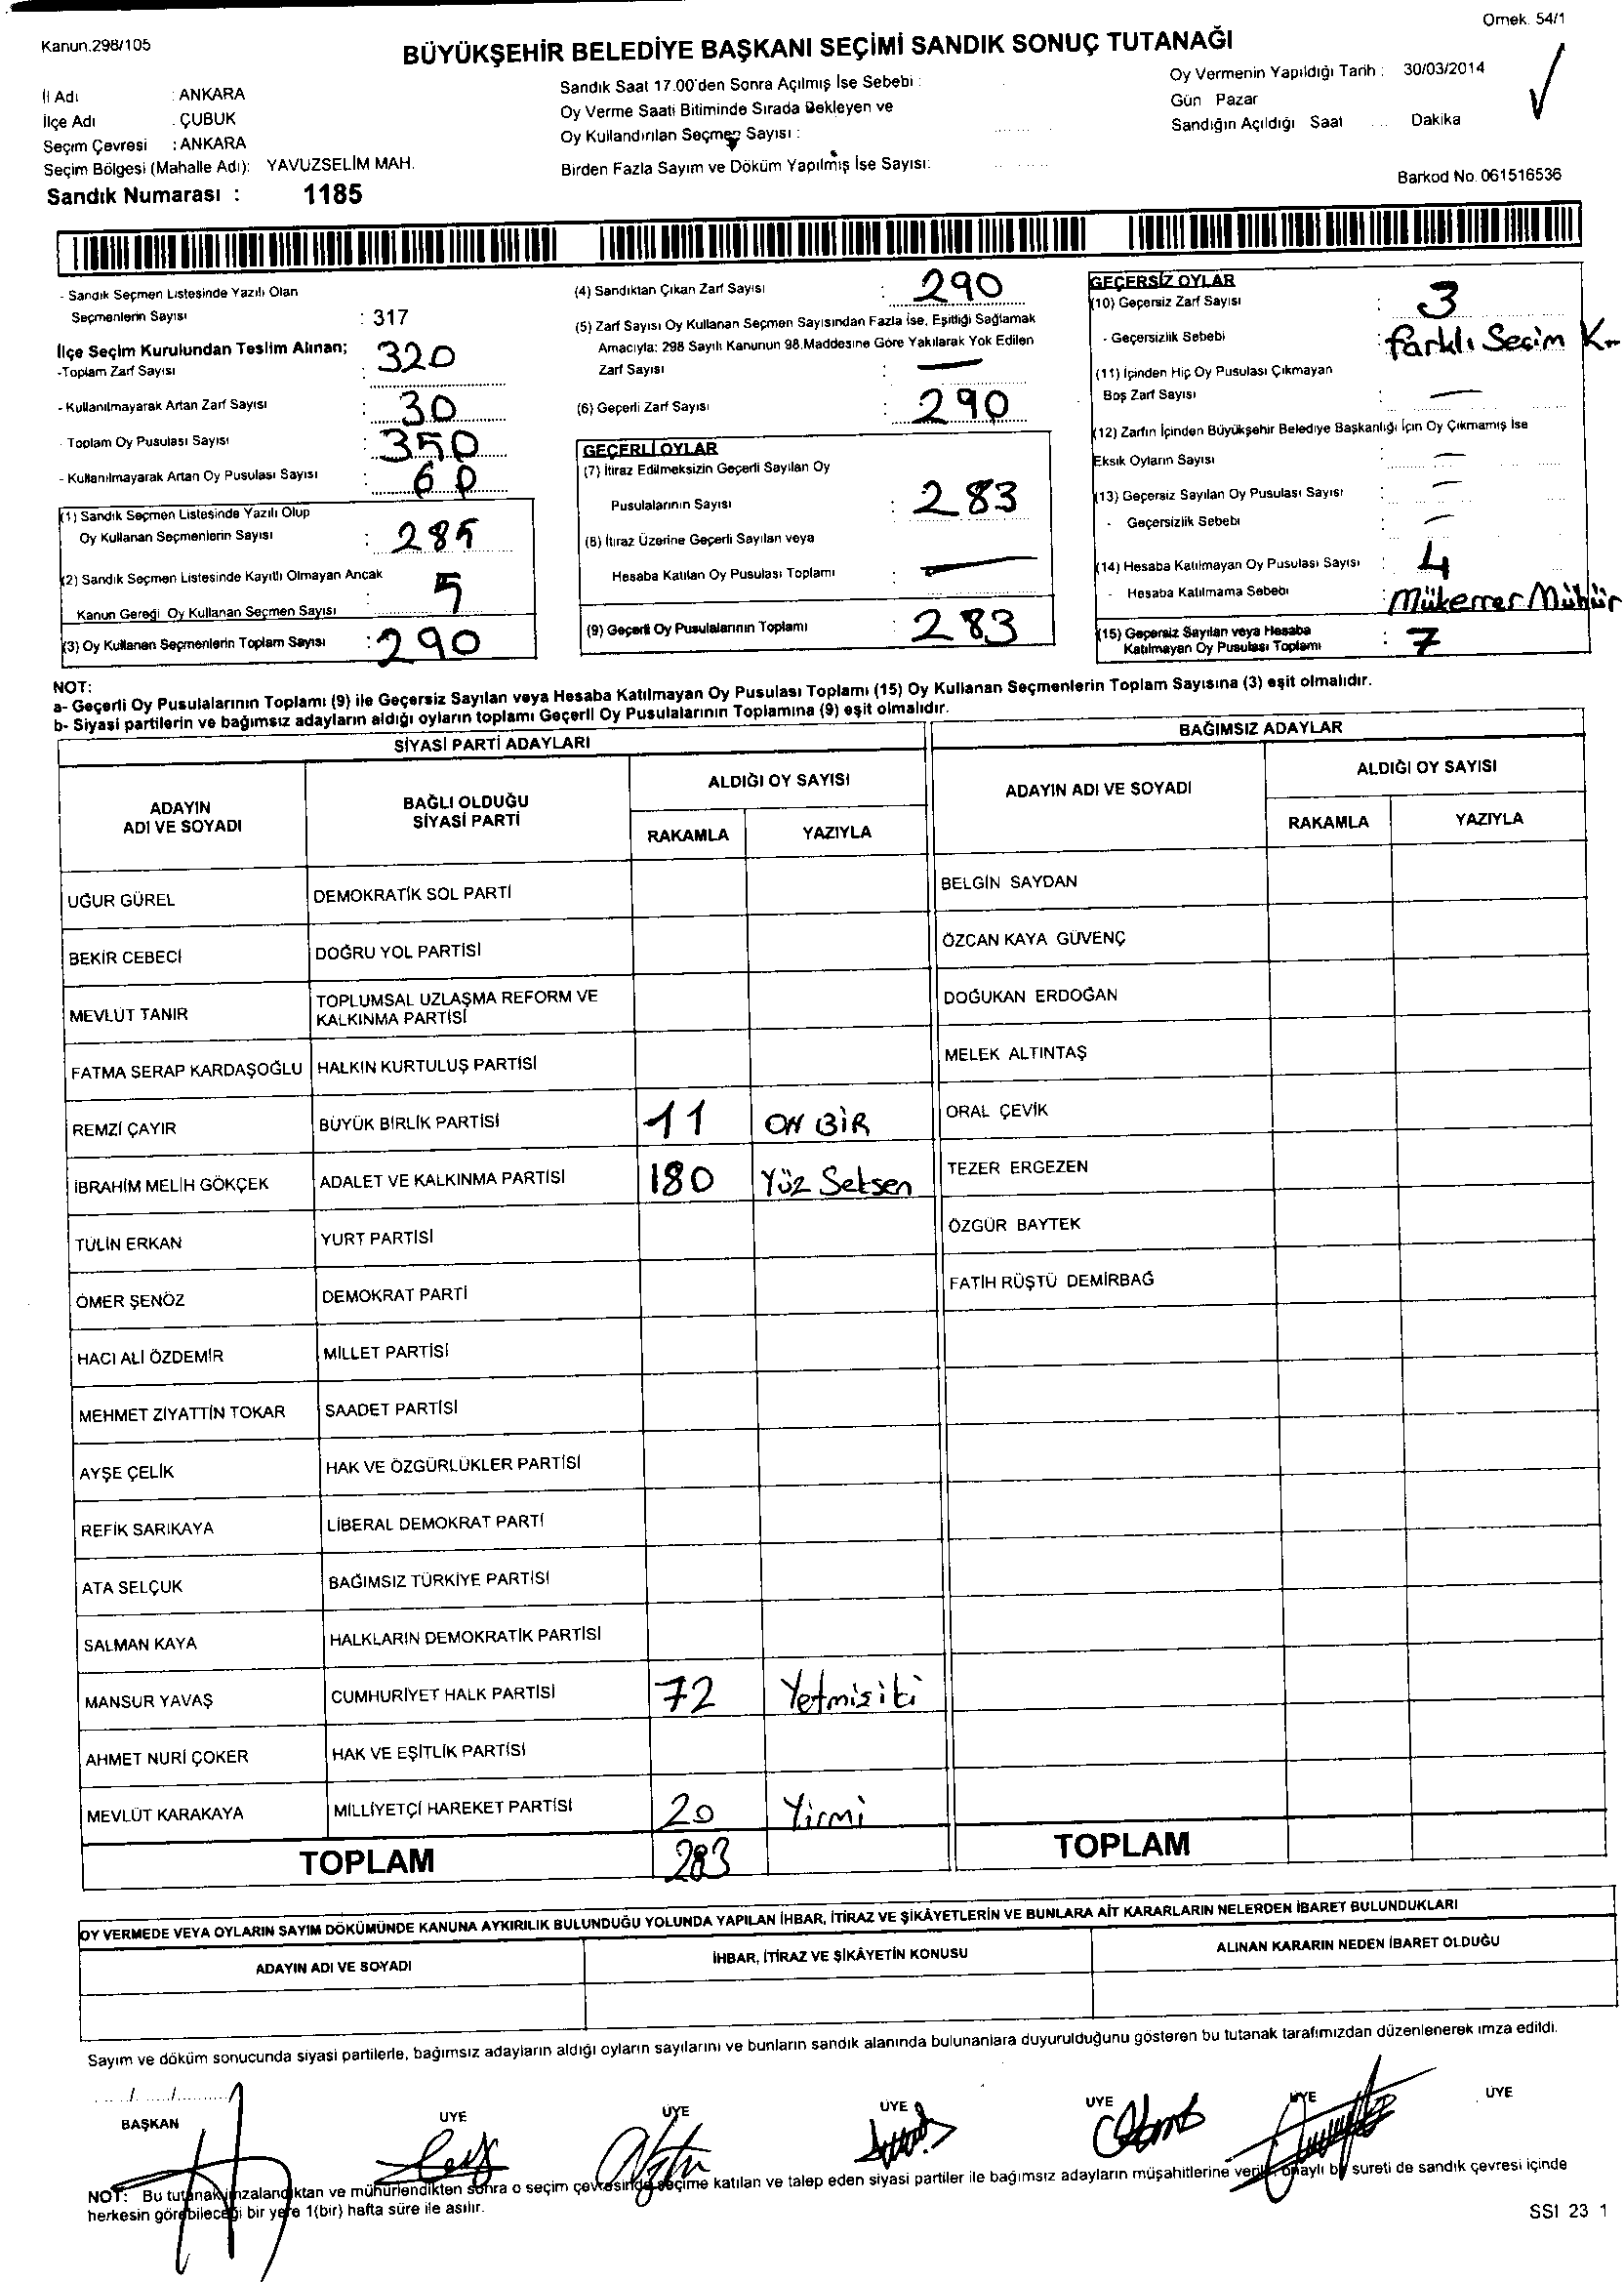 Ornek. 54/1
Kanun.298/105
BÜYÜKŞEHİR BELEDİYE BAŞKANI SEÇİMİ SANDIK SONUÇ TUTANAĞI
İl Adı : ANKARA
İlçe Adı : ÇUBUK
Seçim Çevresi : ANKARA
Seçim Bölgesi (Mahalle Adı): YAVUZSELİM MAH.
Sandık Numarası : 1185
Sandık Saat 17.00'den Sonra Açılmış İse Sebebi :
Oy Verme Saati Bitiminde Sırada Bekleyen ve
Oy Kullandırılan Seçmen Sayısı :
Birden Fazla Sayım ve Döküm Yapılmış İse Sayısı:
Oy Vermenin Yapıldığı Tarih : 30/03/2014
Gün Pazar
Sandığın Açıldığı Saat ... Dakika
Barkod No. 061516536
- Sandık Seçmen Listesinde Yazılı Olan
Seçmenlerin Sayısı : 317
İlçe Seçim Kurulundan Teslim Alınan;
-Toplam Zarf Sayısı : 320
- Kullanılmayarak Artan Zarf Sayısı : 30
- Toplam Oy Pusulası Sayısı : 350
- Kullanılmayarak Artan Oy Pusulası Sayısı : 60
(1) Sandık Seçmen Listesinde Yazılı Olup
Oy Kullanan Seçmenlerin Sayısı : 285
(2) Sandık Seçmen Listesinde Kayıtlı Olmayan Ancak
Kanun Gereği Oy Kullanan Seçmen Sayısı : 5
(3) Oy Kullanan Seçmenlerin Toplam Sayısı : 290
(4) Sandıktan Çıkan Zarf Sayısı : 290
(5) Zarf Sayısı Oy Kullanan Seçmen Sayısından Fazla İse, Eşitliği Sağlamak
Amacıyla: 298 Sayılı Kanunun 98.Maddesine Göre Yakılarak Yok Edilen
Zarf Sayısı : —
(6) Geçerli Zarf Sayısı : 290
GEÇERLİ OYLAR
(7) İtiraz Edilmeksizin Geçerli Sayılan Oy
Pusulalarının Sayısı : 283
(8) İtiraz Üzerine Geçerli Sayılan veya
Hesaba Katılan Oy Pusulası Toplamı : —
(9) Geçerli Oy Pusulalarının Toplamı : 283
GEÇERSİZ OYLAR
(10) Geçersiz Zarf Sayısı : 3
- Geçersizlik Sebebi : farklı Seçim K--
(11) İçinden Hiç Oy Pusulası Çıkmayan
Boş Zarf Sayısı : —
(12) Zarfın İçinden Büyükşehir Belediye Başkanlığı İçin Oy Çıkmamış İse
Eksik Oyların Sayısı : —
(13) Geçersiz Sayılan Oy Pusulası Sayısı : —
- Geçersizlik Sebebi : —
(14) Hesaba Katılmayan Oy Pusulası Sayısı : 4
- Hesaba Katılmama Sebebi : Mükerrer Mühür
(15) Geçersiz Sayılan veya Hesaba
Katılmayan Oy Pusulası Toplamı : 7
NOT:
a- Geçerli Oy Pusulalarının Toplamı (9) ile Geçersiz Sayılan veya Hesaba Katılmayan Oy Pusulası Toplamı (15) Oy Kullanan Seçmenlerin Toplam Sayısına (3) eşit olmalıdır.
b- Siyasi partilerin ve bağımsız adayların aldığı oyların toplamı Geçerli Oy Pusulalarının Toplamına (9) eşit olmalıdır.
SİYASİ PARTİ ADAYLARI
ADAYIN ADI VE SOYADI
BAĞLI OLDUĞU SİYASİ PARTİ
ALDIĞI OY SAYISI
RAKAMLA YAZIYLA
UĞUR GÜREL DEMOKRATİK SOL PARTİ
BEKİR CEBECİ DOĞRU YOL PARTİSİ
MEVLÜT TANIR TOPLUMSAL UZLAŞMA REFORM VE
KALKINMA PARTİSİ
FATMA SERAP KARDAŞOĞLU HALKIN KURTULUŞ PARTİSİ
REMZİ ÇAYIR BÜYÜK BİRLİK PARTİSİ 11 ON BİR
İBRAHİM MELİH GÖKÇEK ADALET VE KALKINMA PARTİSİ 180 Yüz Seksen
TÜLİN ERKAN YURT PARTİSİ
ÖMER ŞENÖZ DEMOKRAT PARTİ
HACI ALİ ÖZDEMİR MİLLET PARTİSİ
MEHMET ZİYATTİN TOKAR SAADET PARTİSİ
AYŞE ÇELİK HAK VE ÖZGÜRLÜKLER PARTİSİ
REFİK SARIKAYA LİBERAL DEMOKRAT PARTİ
ATA SELÇUK BAĞIMSIZ TÜRKİYE PARTİSİ
SALMAN KAYA HALKLARIN DEMOKRATİK PARTİSİ
MANSUR YAVAŞ CUMHURİYET HALK PARTİSİ 72 Yetmişiki
AHMET NURİ ÇOKER HAK VE EŞİTLİK PARTİSİ
MEVLÜT KARAKAYA MİLLİYETÇİ HAREKET PARTİSİ 20 Yirmi
TOPLAM 283
BAĞIMSIZ ADAYLAR
ADAYIN ADI VE SOYADI
ALDIĞI OY SAYISI
RAKAMLA YAZIYLA
BELGİN SAYDAN
ÖZCAN KAYA GÜVENÇ
DOĞUKAN ERDOĞAN
MELEK ALTINTAŞ
ORAL ÇEVİK
TEZER ERGEZEN
ÖZGÜR BAYTEK
FATİH RÜŞTÜ DEMİRBAĞ
TOPLAM
OY VERMEDE VEYA OYLARIN SAYIM DÖKÜMÜNDE KANUNA AYKIRILIK BULUNDUĞU YOLUNDA YAPILAN İHBAR, İTİRAZ VE ŞİKÂYETLERİN VE BUNLARA AİT KARARLARIN NELERDEN İBARET BULUNDUKLARI
ADAYIN ADI VE SOYADI İHBAR, İTİRAZ VE ŞİKÂYETİN KONUSU ALINAN KARARIN NEDEN İBARET OLDUĞU
Sayım ve döküm sonucunda siyasi partilerle, bağımsız adayların aldığı oyların sayılarını ve bunların sandık alanında bulunanlara duyurulduğunu gösteren bu tutanak tarafımızdan düzenlenerek imza edildi.
...../...../..........
BAŞKAN ÜYE ÜYE ÜYE ÜYE ÜYE ÜYE
NOT: Bu tutanak imzalandıktan ve mühürlendikten sonra o seçim çevresinde seçime katılan ve talep eden siyasi partiler ile bağımsız adayların müşahitlerine verilir. onaylı bir sureti de sandık çevresi içinde
herkesin görebileceği bir yere 1(bir) hafta süre ile asılır.
SSI 23 1